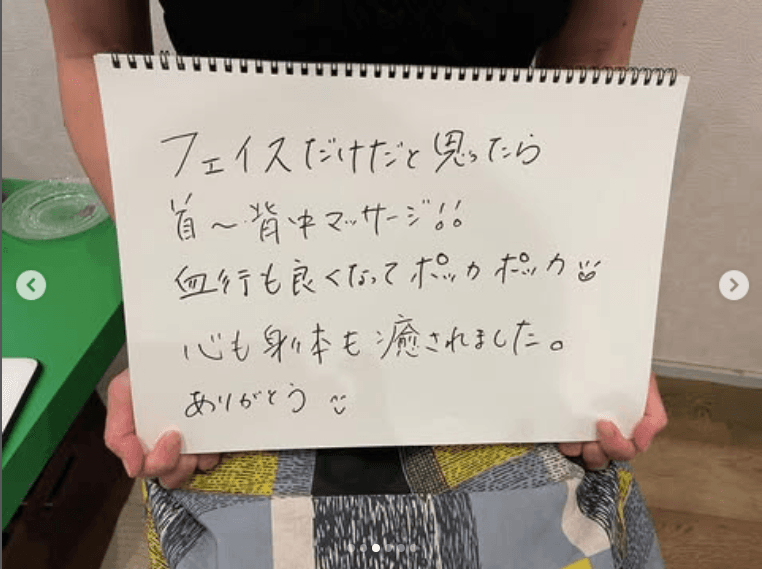 フェイスだけだと思ったら
首〜背中マッサージ!!
血行も良くなってポッカポッカ
心も身体も癒されました。
ありがとう